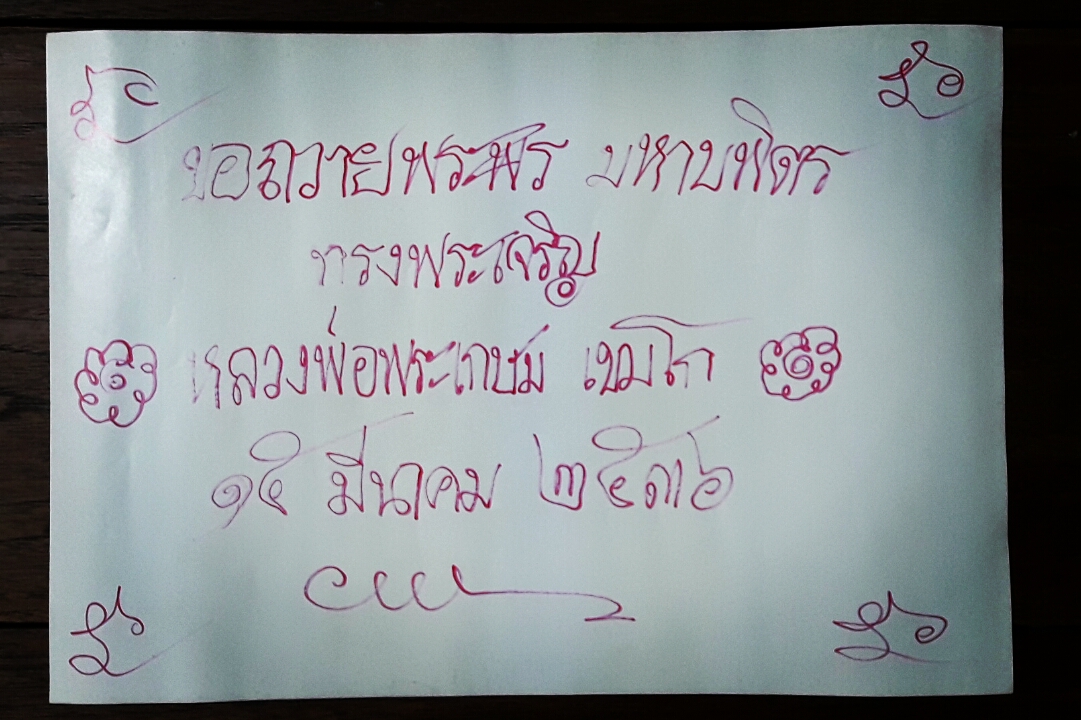 ขอถวายพระพร มหาบพิตร
ทรงพระเจริญ
หลวงพ่อพระเกษม เขมโก
๑๕ มีนาคม ๒๕๓๖